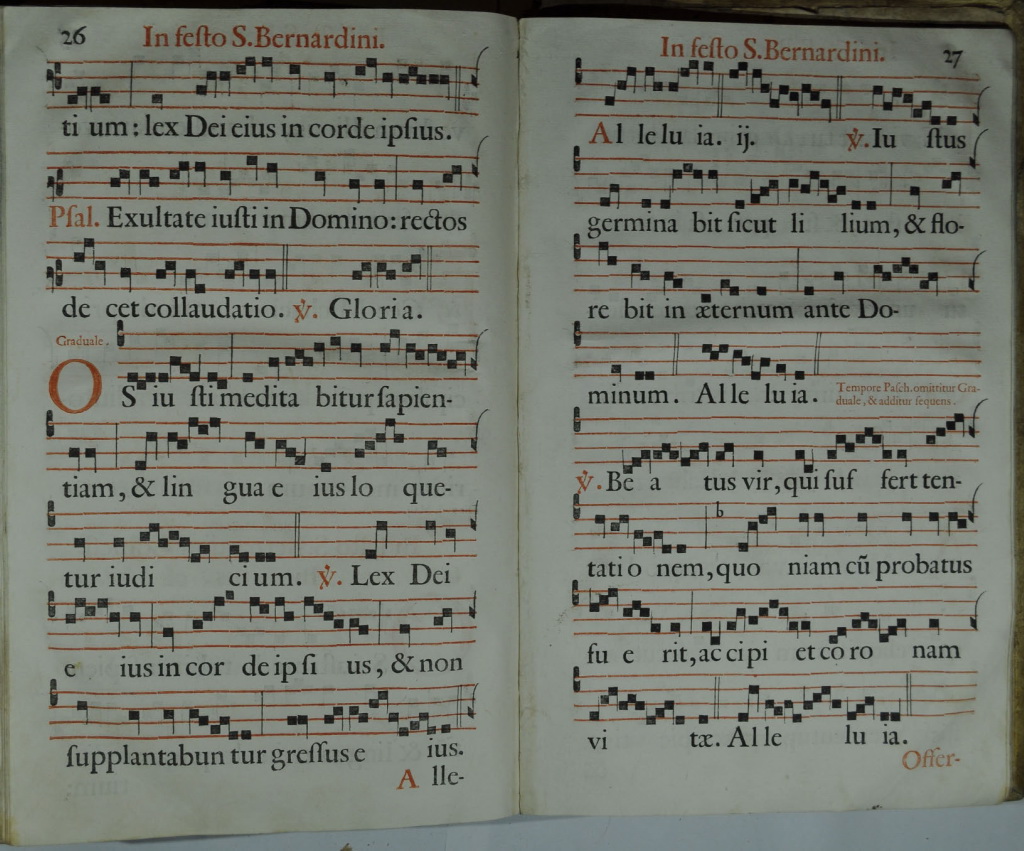 26 In feſto S. Bernardini.
ti um : lex Dei eius in corde ipſius.
Pſal. Exultate iuſti in Domino: rectos
de cet collaudatio. ℣. Gloria.
Graduale.
OS iu ſti medita bitur ſapien-
tiam, & lin gua e ius lo que-
tur iudi ci um. ℣. Lex Dei
e ius in cor de ip ſi us, & non
ſupplantabun tur greſſus e ius.
A lle-
In feſto S. Bernardini. 27
Al le lu ia. ij. ℣. Iu ſtus
germina bit ſicut li lium, & flo-
re bit in æternum ante Do-
minum. Al le lu ia.
Tempore Paſch. omittitur Gra-
duale, & additur ſequens.
℣. Be a tus vir, qui ſuf fert ten-
tati o nem, quo niam cū probatus
fu e rit, ac ci pi et co ro nam
vi tæ. Al le lu ia.
Offer-